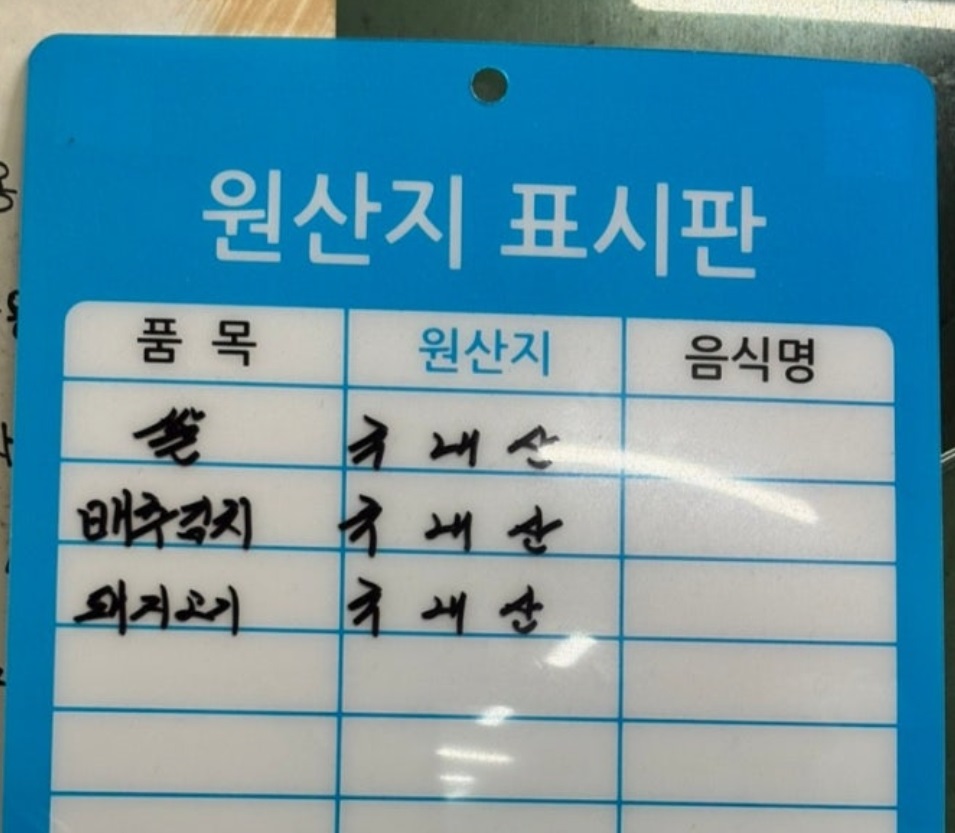 원산지 표시판
품 목 원산지 음식명
쌀 국내산
배추김치 국내산
돼지고기 국내산